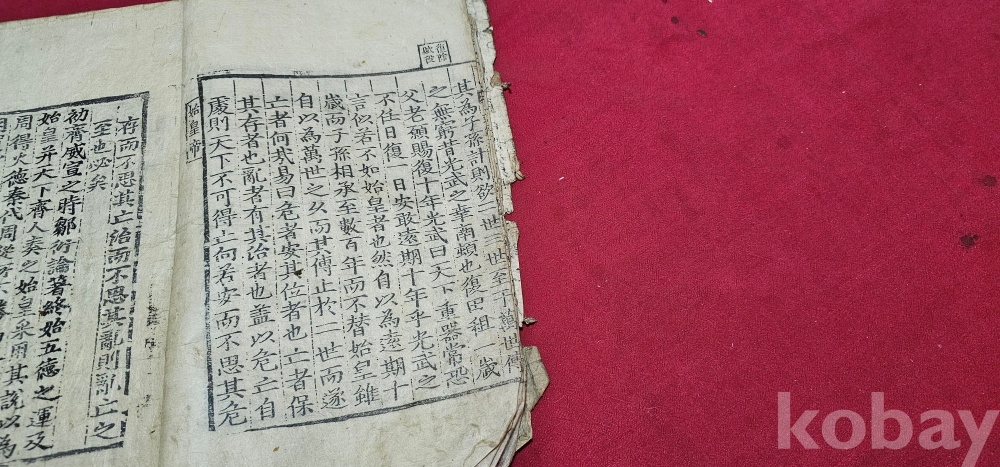 其為子孫計則欲一世二世至于萬世傳
之無窮昔光武之華南頓也復田租一歲
父老願賜復十年光武曰天下重器常恐
不任日復一日安敢遠期十年乎光武之
言似若不如始皇者也然自以為遠期十
歲而子孫相承至數百年而不替始皇雖
自以為萬世之久而其傳止於二世而遂
亡者何哉易曰危者安其位者也亡者保
其存者也亂者有其治者也蓋以危亡自
處則天下不可得亡向若安而不思其危
始皇帝
存而不思其亡治而不思其亂則亂亡之
至也必矣
初齊威宣之時鄒衍論著終始五德之運及
始皇并天下齊人奏之始皇采用其說以為
周得火德秦代周從所不勝
kobay